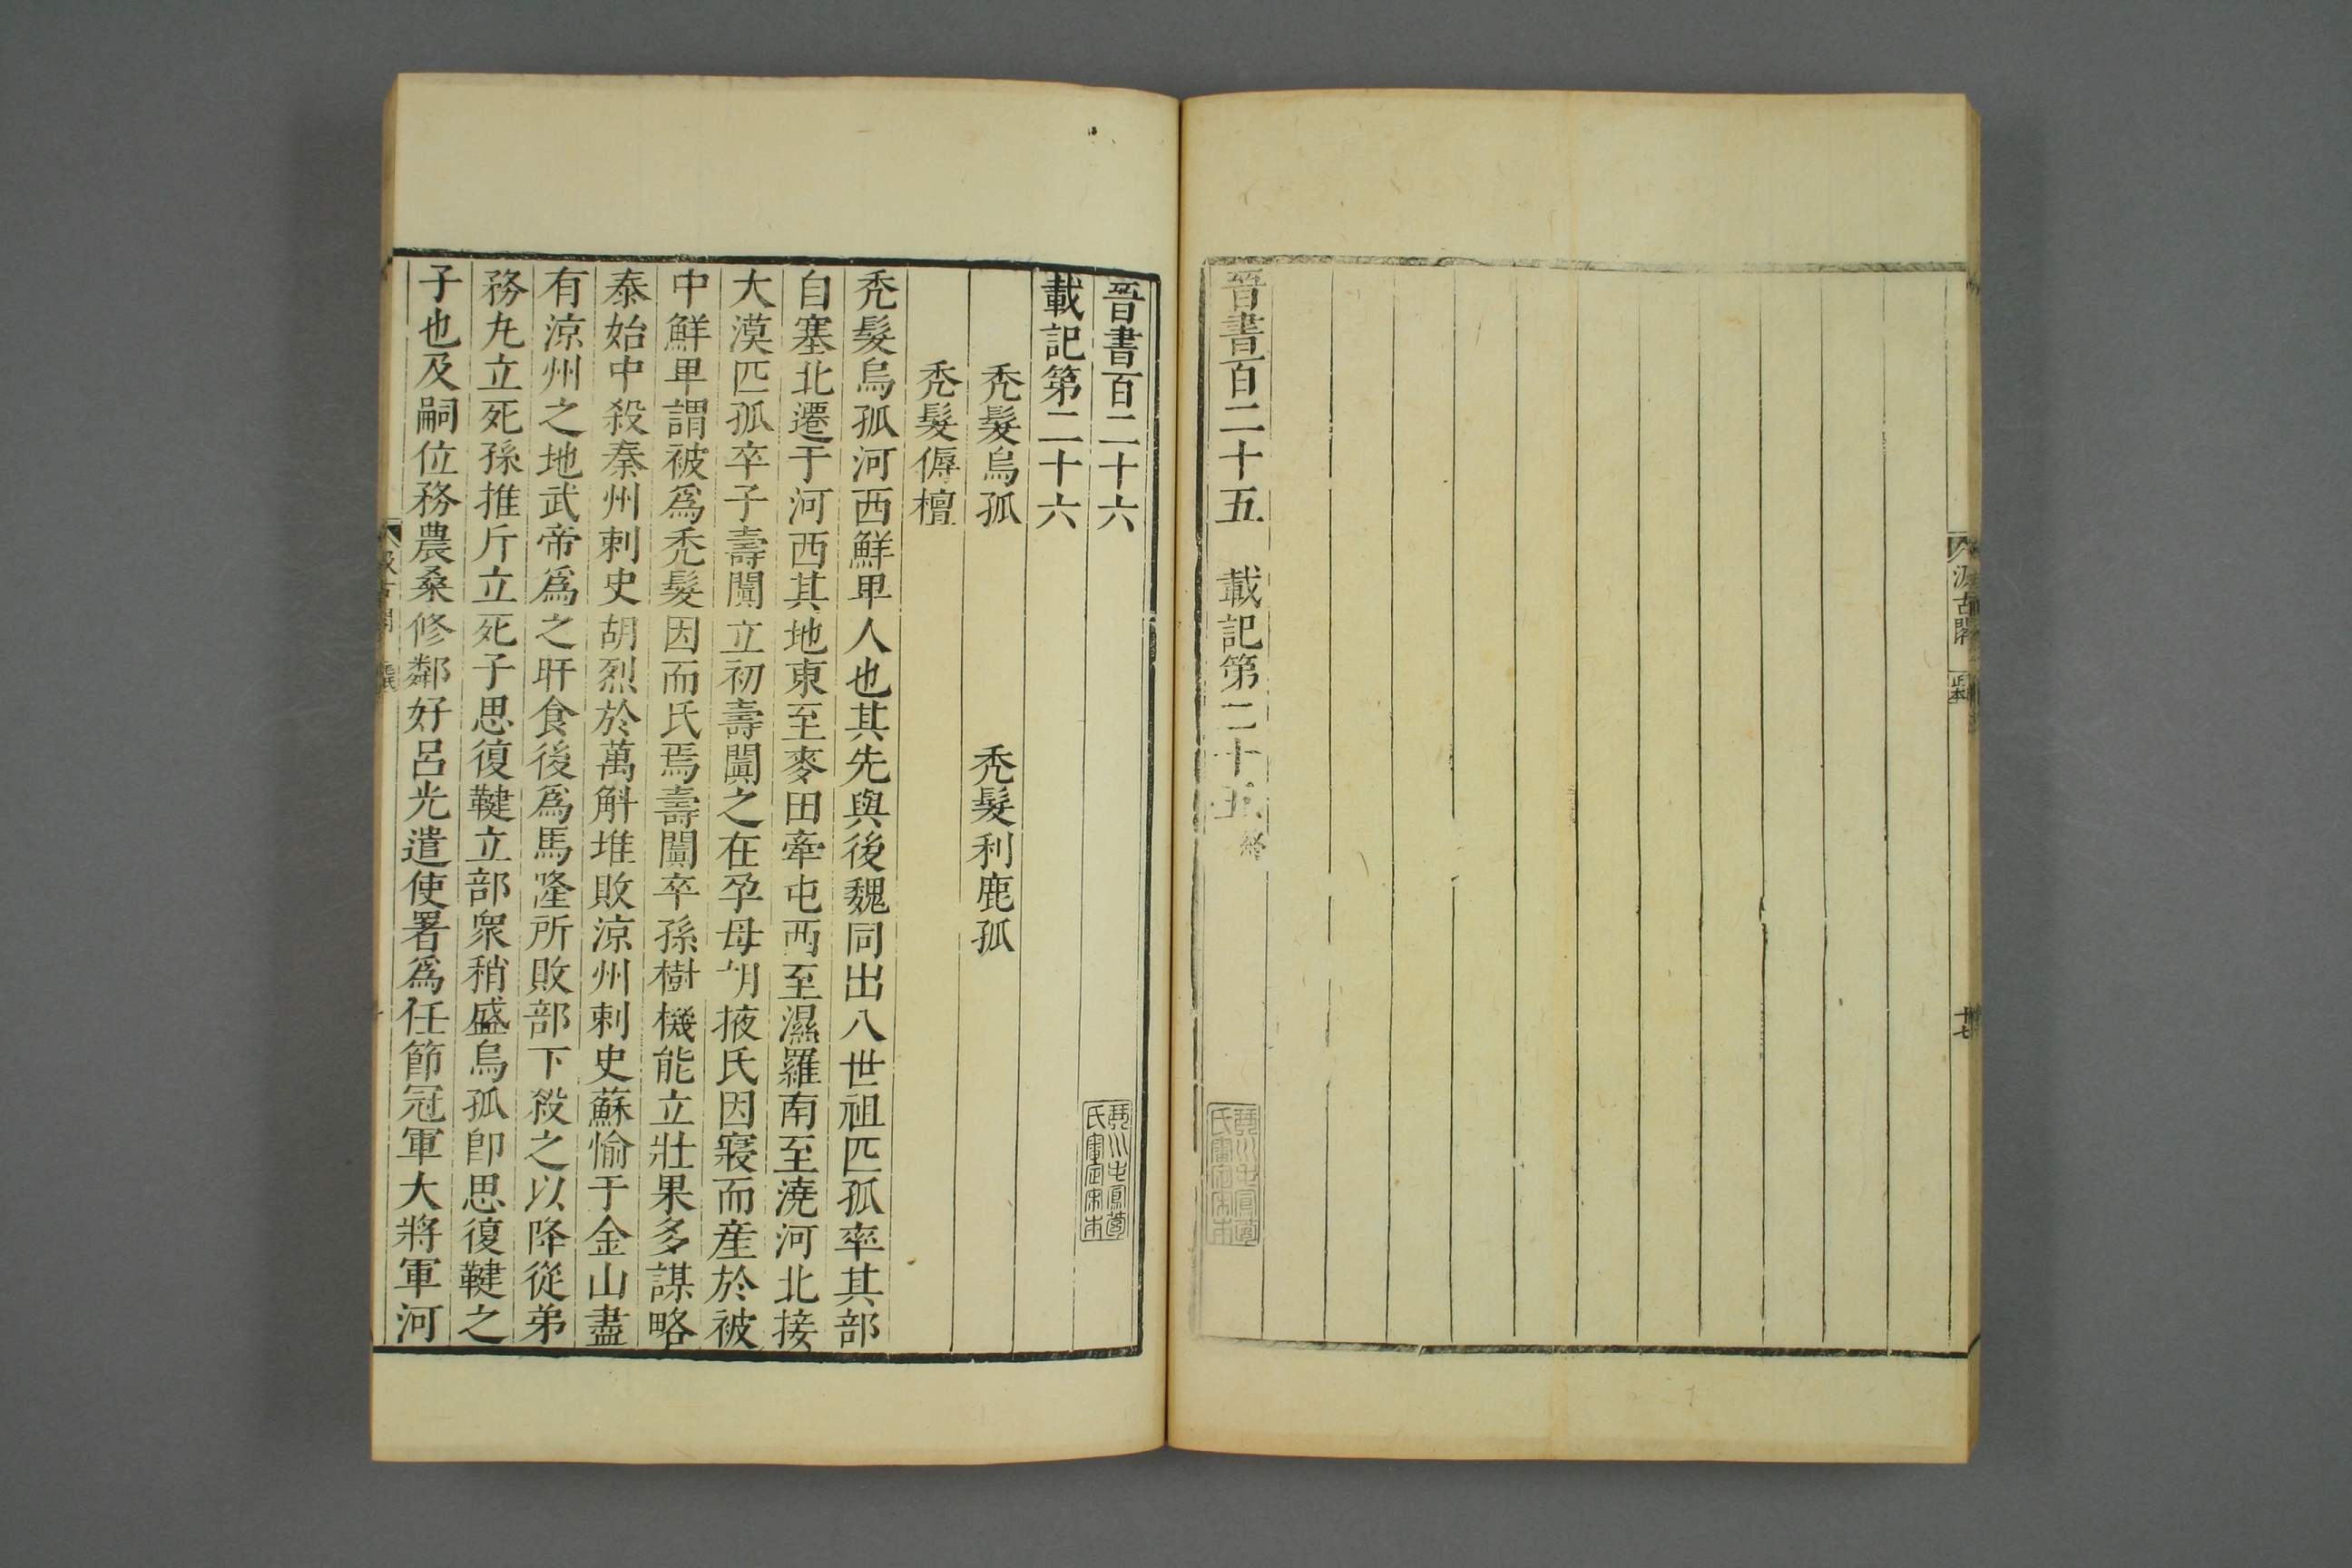 晉書百二十五　載記第二十五終
汲古閣
正本
十七
晉書百二十六
載記第二十六
禿髮烏孤　禿髮利鹿孤
禿髮傉檀
禿髮烏孤河西鮮卑人也其先與後魏同出八世祖匹孤率其部
自塞北遷于河西其地東至麥田牽屯西至濕羅南至澆河北接
大漠匹孤卒子壽闐立初壽闐之在孕母胡掖氏因寢而產於被
中鮮卑謂被爲禿髮因而氏焉壽闐卒孫樹機能立壯果多謀略
泰始中殺秦州刺史胡烈於萬斛堆敗涼州刺史蘇愉于金山盡
有涼州之地武帝爲之旰食後爲馬隆所敗部下殺之以降從弟
務丸立死孫推斤立死子思復鞬立部衆稍盛烏孤卽思復鞬之
子也及嗣位務農桑修鄰好呂光遣使署爲假節冠軍大將軍河